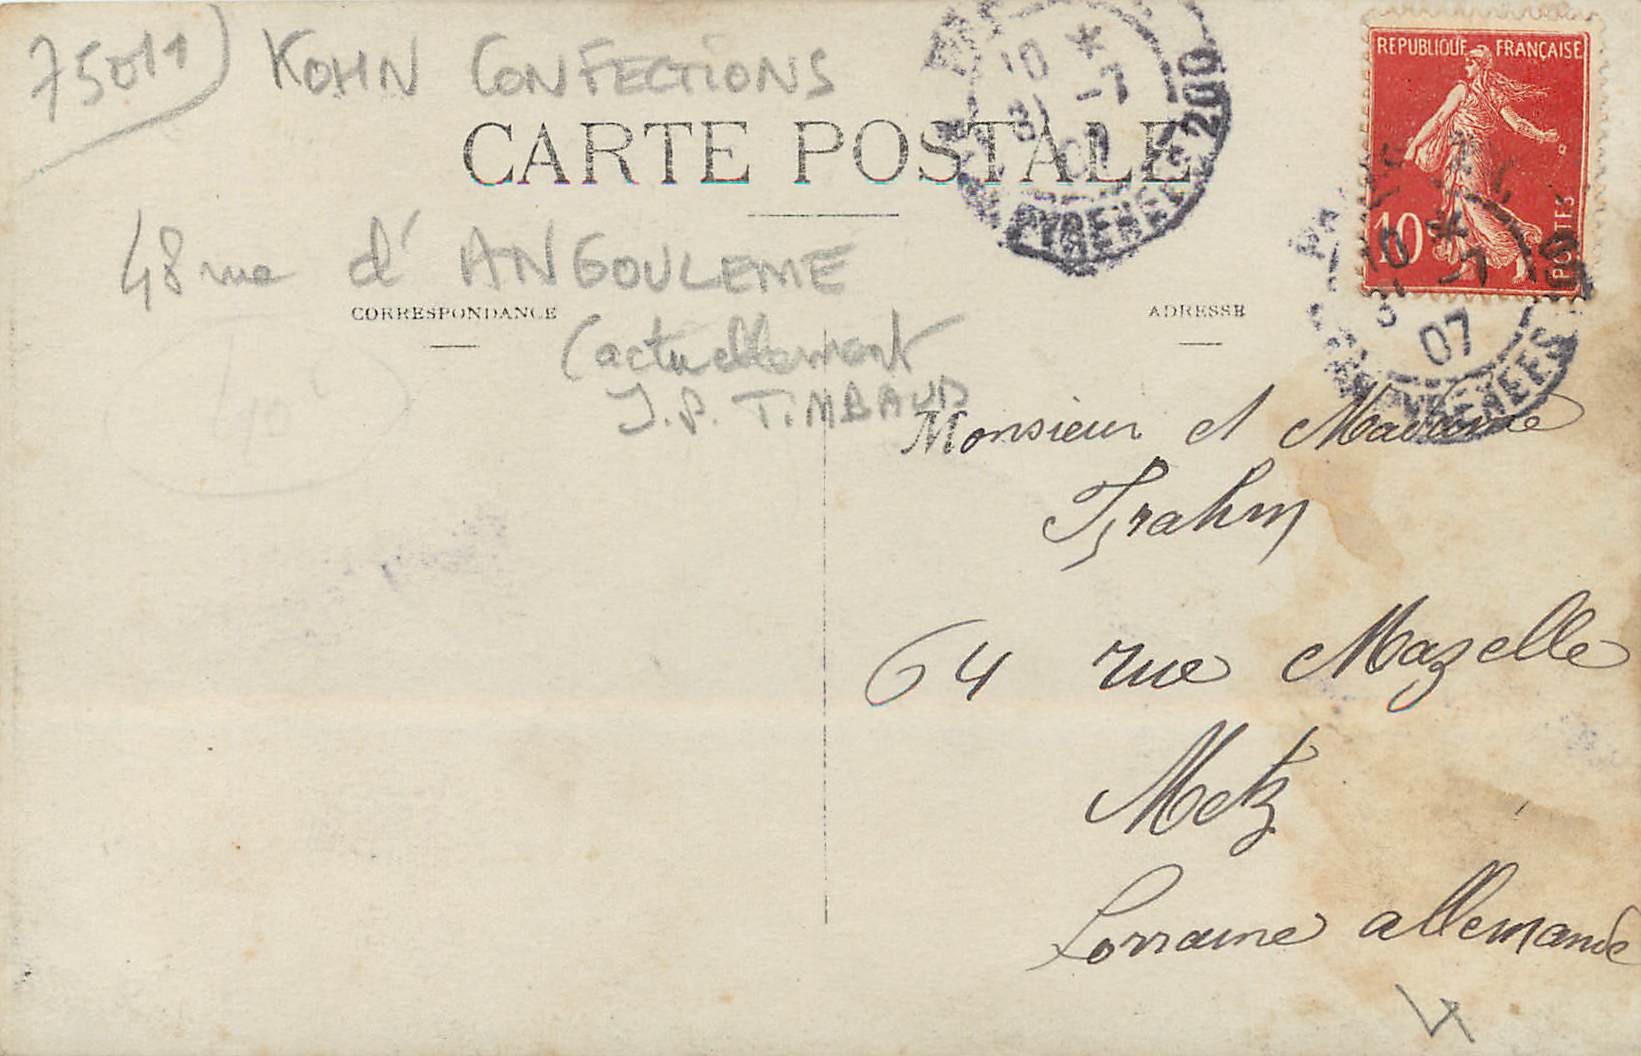 75011) KOHN CONFECTIONS
CARTE POSTALE
48 rue d'ANGOULEME
(actuellement
J.P. TIMBAUD
CORRESPONDANCE
ADRESSE
REPUBLIQUE FRANÇAISE
10
POSTES
10 * 31 -7 07
PYRENEES
10 * 31 -7 07
PYRENEES
Monsieur et Madame
64 rue Mazelle
Metz
Lorraine allemande